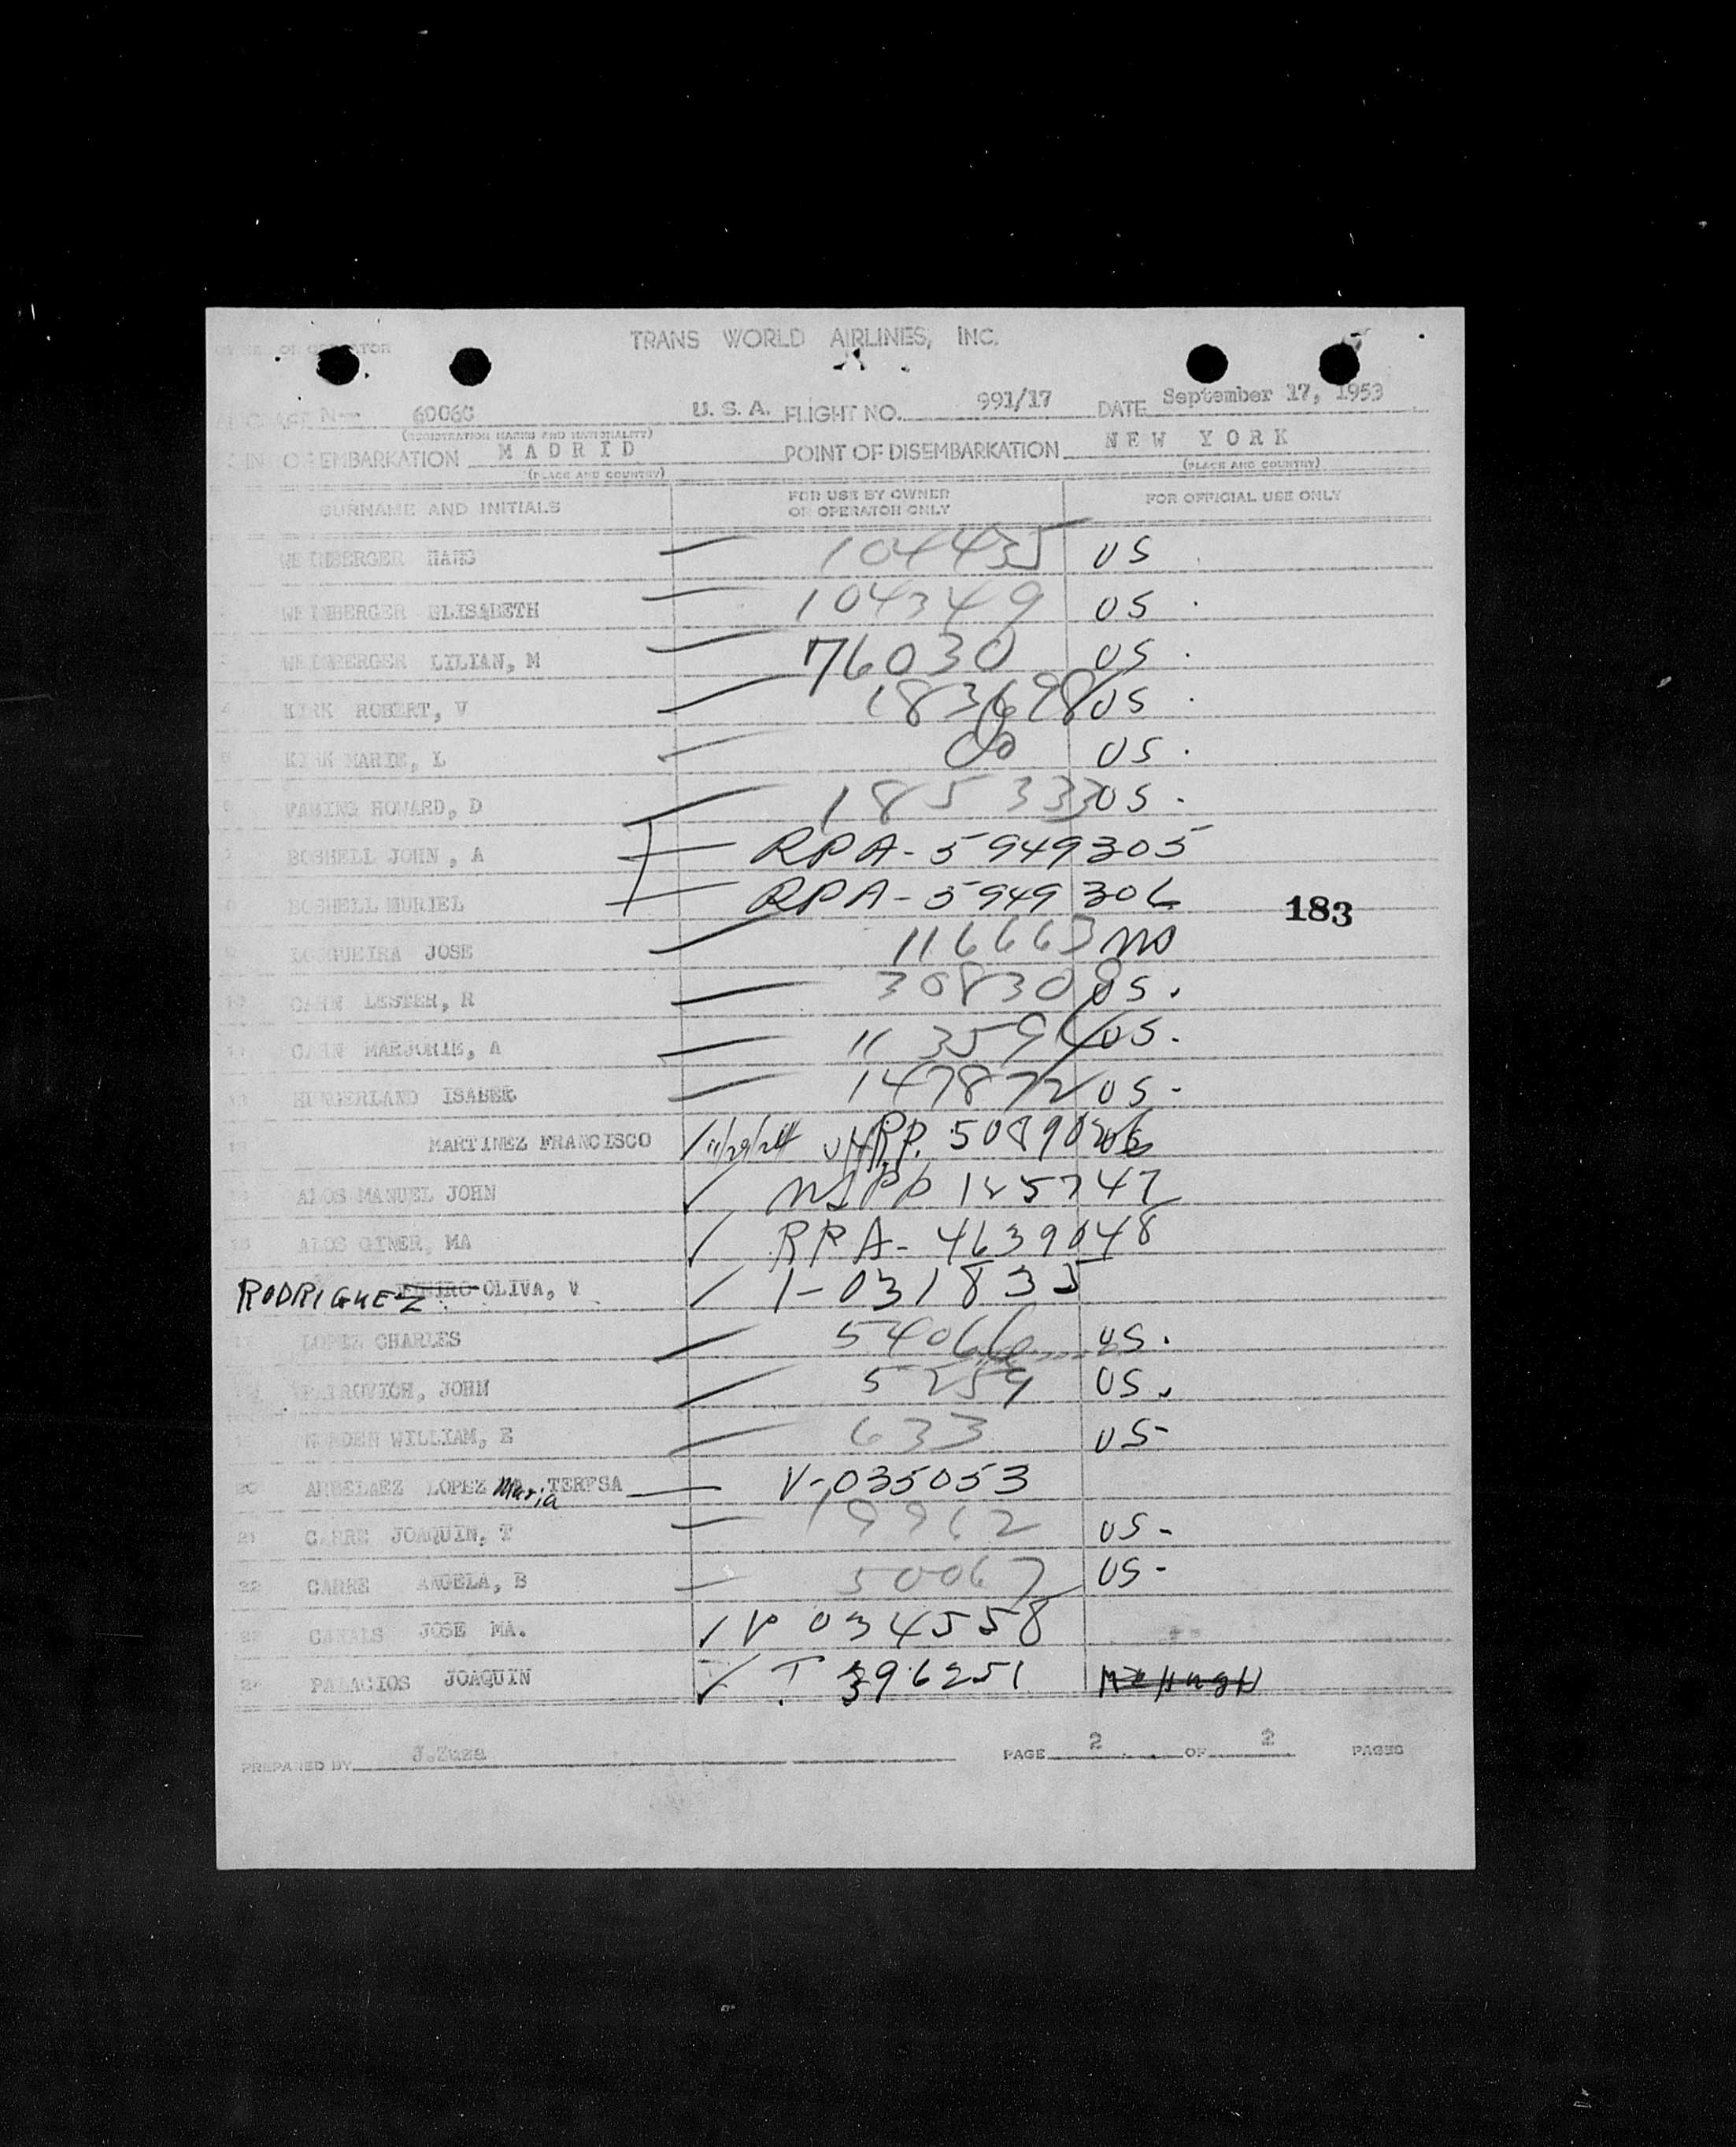 TRANS WORLD AIRLINES, INC.
N— 6006C U. S. A. FLIGHT NO. 991/17 DATE September 17, 1953
(REGISTRATION MARKS AND NATIONALITY)
OF EMBARKATION MADRID POINT OF DISEMBARKATION NEW YORK
(PLACE AND COUNTRY) (PLACE AND COUNTRY)
SURNAME AND INITIALS FOR USE BY OWNER OR OPERATOR ONLY FOR OFFICIAL USE ONLY
WEINBERGER HANS 104435 US
WEINBERGER ELISABETH 104349 US
WEINBERGER LILIAN, M 76030 US
KIRK ROBERT, V 183698 US
KIRK MARIE, L do US
FABING HOWARD, D 185333 US
BOSHELL JOHN, A RPA-5949305
BOSHELL MURIEL RPA-5949306
183
JOSE 116663 no
10 CAHN LESTER, R 308308 US
11 CAHN MARJORIE, A 113596 US
12 HUNGERLAND ISABEL 147872 US
13 MARTINEZ FRANCISCO 11/29/24 RP. 508902
14 ALOS MANUEL JOHN PP 125747
15 ALOS GINER, MA RPA-4639048
RODRIGUEZ OLIVA, V I-031835
17 LOPEZ CHARLES 54066 US
18 PETROVICH, JOHN 5259 US
19 NORDEN WILLIAM, E 633 US
20 ARBELAEZ LOPEZ Maria TERESA V-035053
21 CARRE JOAQUIN, T 19962 US
22 CARRE ANGELA, B 50067 US
23 CANALS JOSE MA. V 034558
24 PALACIOS JOAQUIN T 396251 McHugh
PREPARED BY J.Zuza PAGE 2 OF 2 PAGES